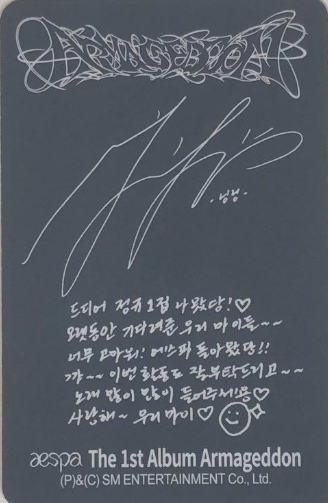 ARMAGEDDON
·닝닝·
드디어 정규 1집 나왔당!♡
오랫동안 기다려준 우리 마이들~~
너무 고마워! 에스파 돌아왔당!!
꺄~~ 이번 활동도 잘 부탁드리고~~
노래 많이 많이 들어주세용♡
사랑해~ 우리 마이♡
aespa The 1st Album Armageddon
(P)&(C) SM ENTERTAINMENT Co., Ltd.